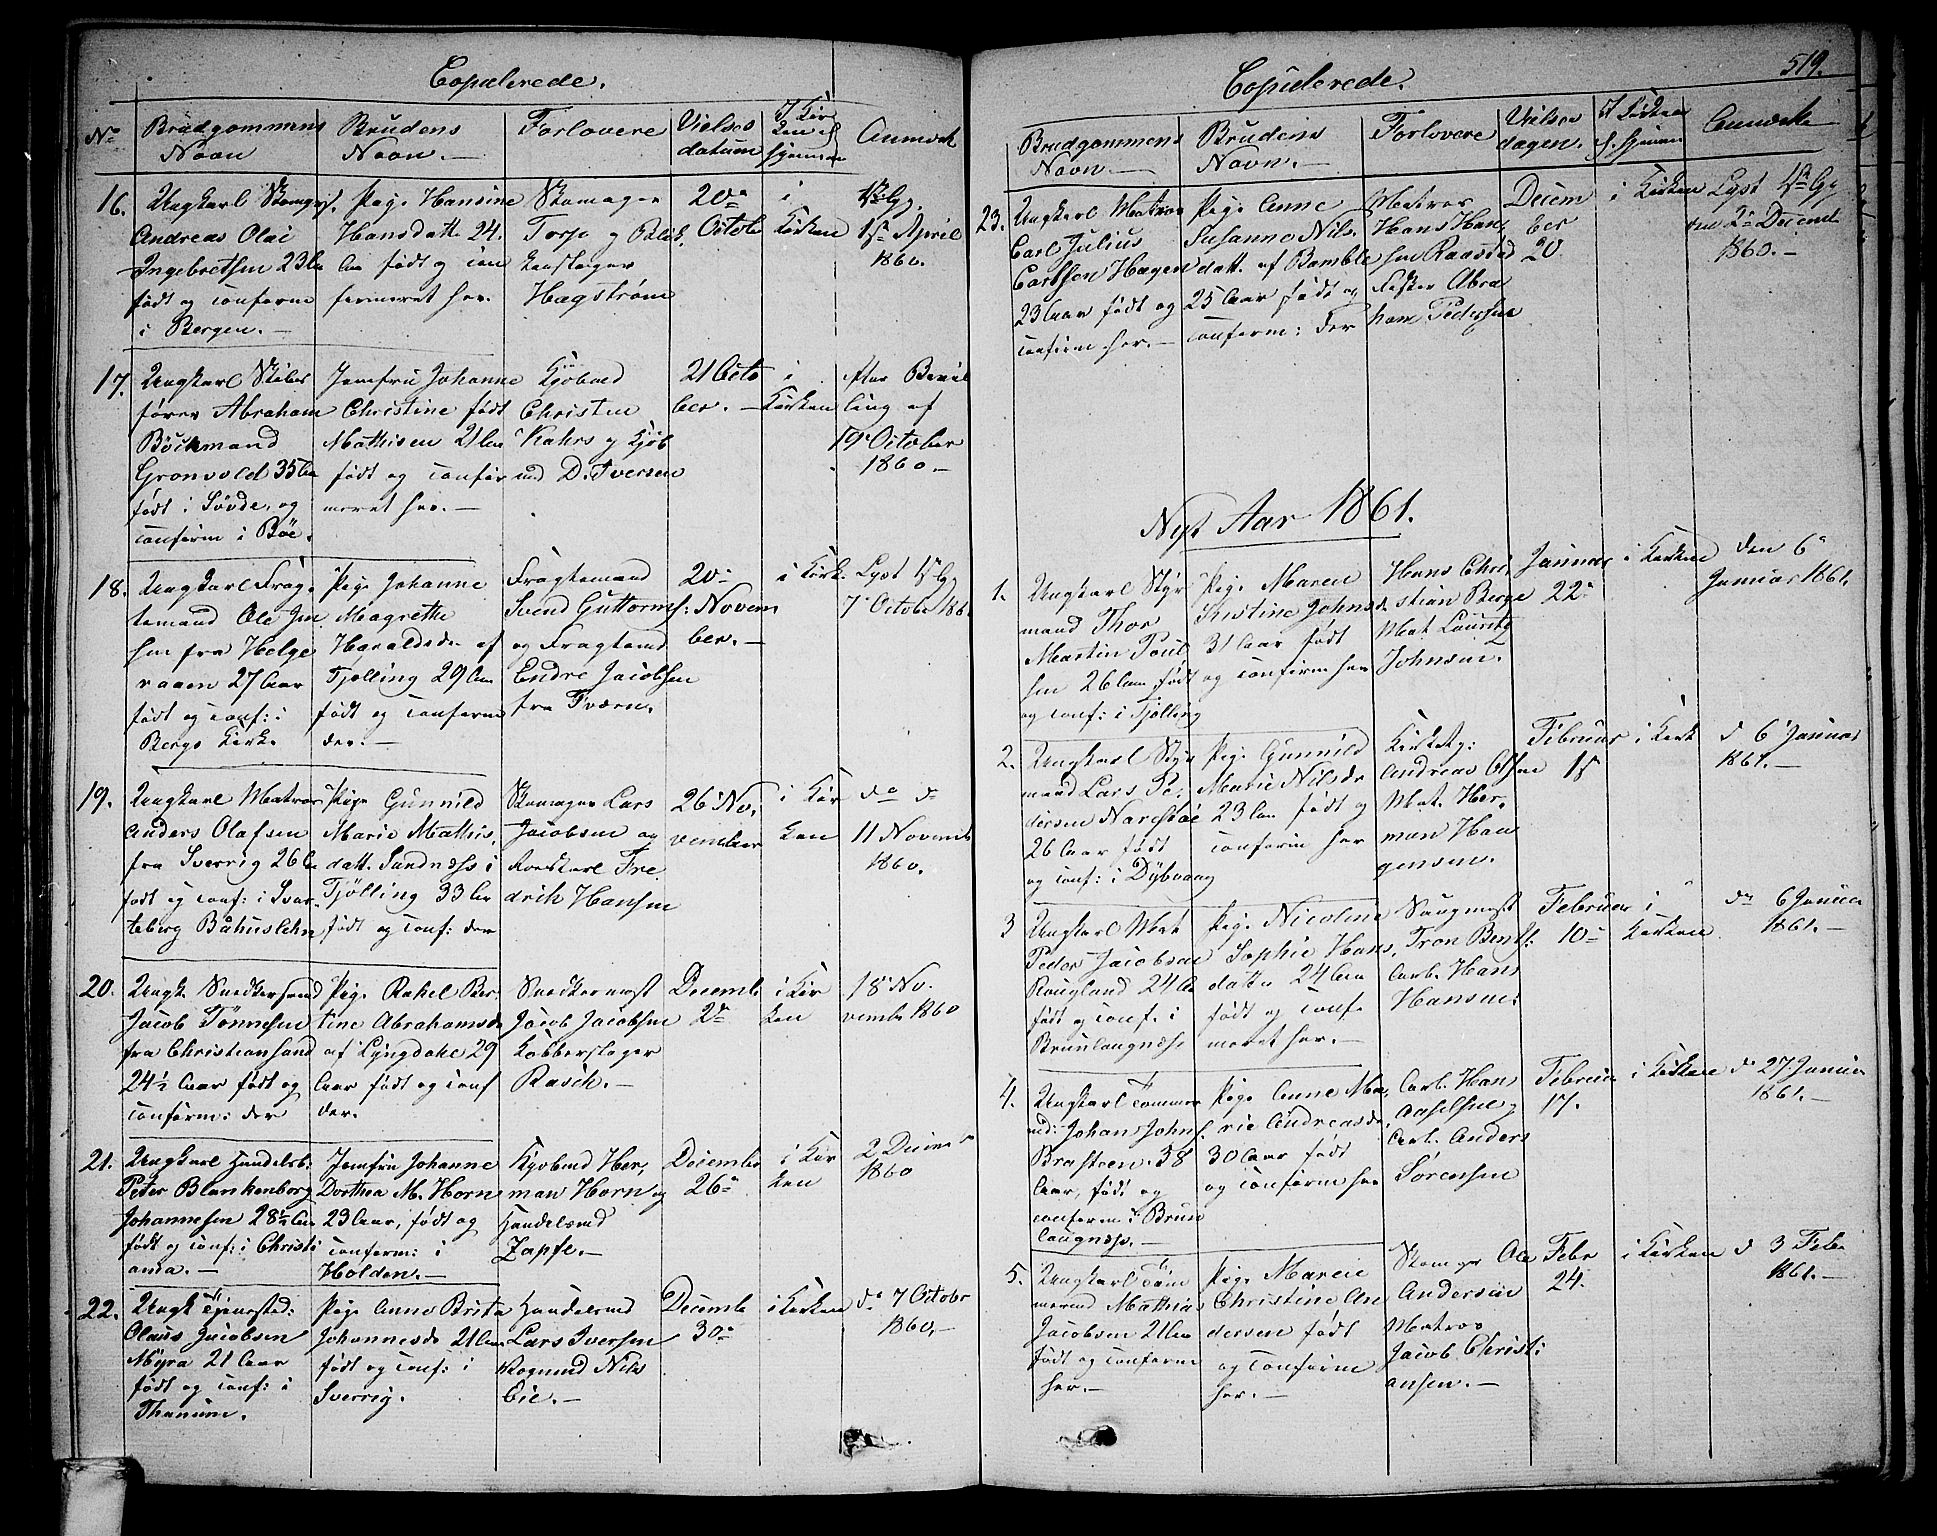 Copulerede.
No Brudgommens Navn Brudens Navn. Forlovere Vielses datum I Kirken el. hjemme Anmærk
16. Ungkarl Skomags. Andreas Olai Ingebretsen 23 Aar født og conferm i Bergen.
Pige Hansine Hansdatt 24 Aar født og confermeret her.
Skomager Torjo og Blikkenslager Hagstrøm
20de Octob
i Kirken
1ste Gg. 1ste April 1860.
17. Ungkarl Skibsfører Abraham Böckmand Gronvold 35 Aar født i Sövde, og conferm i Böe.
Jomfru Johanne Christine født Mathisen 21 Aar født og confermeret her.
Kjöbmd Christen Kahrs og Kjöbmd D. Iversen
21 October.
i Kirken
efter Bevilling af 19 October 1860.
18. Ungkarl Fragtemand Ole Jensen fra Helgeraaen 27 Aar født og conf: i Bergs Kirke
Pige Johanne Magrethe Haraldsdr af Tjølling 29 Aar født og conferm der.
Fragtemand Svend Guttorms: og Fragtemd Endre Jacobsen fra Tværen.
20de November.
i Kirk.
Lyst 1ste Gg 7de October 1860
19. Ungkarl Matros Anders Olafsen fra Sverrig 26 Aar født og conf: i Svarteberg Båhuslehn
Pige Gunnild Marie Mathisdatt. Sundnæss i Tjølling 33 Aar født og conf: der
Skomager Lars Jacobsen og Roeskarl Fredrik Hansen
26 November
i Kirken
do do 11 Novemb 1860.
20. Ungk. Snedkersvend Jacob Tønnesen fra Christiansand 24½ Aar født og conferm: der
Pige Rakel Bertine Abrahamsdr af Lyngdahl 29 Aar født og conf der.
Snedkermest Jacob Jacobsen Kobberslager Rasch.
Decemb 2de
i Kirken
18de Novemb 1860
21. Ungkarl Handelsb: Peter Blankenborg Johannesen 28½ Aar født og conf: i Christiania.
Jomfru Johanne Dorthea M. Horn 23 Aar, født og conferm: i Holden.
Kjøbmd Herman Horn og Handelsmd Zapfe.
December 26de
i Kirken
2 Decemb 1860
22. Ungk Tjenested: Olaus Jacobsen Myra 21 Aar født og conf: i Thanum.
Pige Anne Brita Johannesdr 21 Aar født og conf: i Sverrig.
Handelsmd Lars Iversen Vognmd Nils Eie.
Decemb 30te
i Kirken
do 7 Octobr 1860.
Copulerede. 519.
Brudgommens Navn. Brudens Navn. Forlovere Vielsesdagen. I Kirken el. hjemme Anmærk
23. Ungkarl Matros Carl Julius Carlsen Hagen 23 Aar født og conferm her.
Pige Anne Susanne Nilsdatt. af Bamble 25 Aar født og conferm: der
Matros Hans Hansen Raastad Fisker Abraham Pedersen
December 20
i Kirken
Lyst 1ste Gg den 2de Decemb 1860.
Nyt Aar 1861.
1. Ungkarl Styrmand Thor Martin Poulsen 26 Aar født og conf: i Tjølling
Pige Maren Kristine Johnsdr 31 Aar født og conferm her
Hans Christian Berge Mat. Lauritz Johnsen.
Januar 22de
i Kirken
den 6te Januar 1861.
2. Ungkarl Styrmand Lars Pedersen Narestöe 26 Aar født og conf: i Dybvaag
Pige Gunnild Marie Nilsdr 23 Aar født og conferm her
Kirketj: Andreas Olsen Mat. Herman Hangensen.
Februar 15
i Kirk
d 6 Januar 1861.
3 Ungkarl Mat Peder Jacobsen Rougland 24 Aar født og conf: i Brunlaugnæss
Pige Nicoline Sophie Hansdatter 24 Aar født og confermeret her.
Saugmest Tron Bents: Arb. Hans Hansen.
Februar 10de
i Kirken
do 6 Januar 1861.
4. Ungkarl Tømmermd: Johan Johns. Brasteen. 38 Aar, født og conferm i Brunlaugnæss.
Pige Anne Marie Andreasdr. 30 Aar født og conferm her
Arb. Hans Axelsen og Arb. Anders Sørensen
Februar 17.
i Kirken
do 27 Januar 1861.
5. Ungkarl Tømmermd Mathias Jacobsen 21 Aar født og conferm her.
Pige Maren Christine Andersen født og conferm her.
Skomager Ole Andersen Matros Jacob Christiansen.
Febr 24.
i Kirken
d 3 Febr 1861.